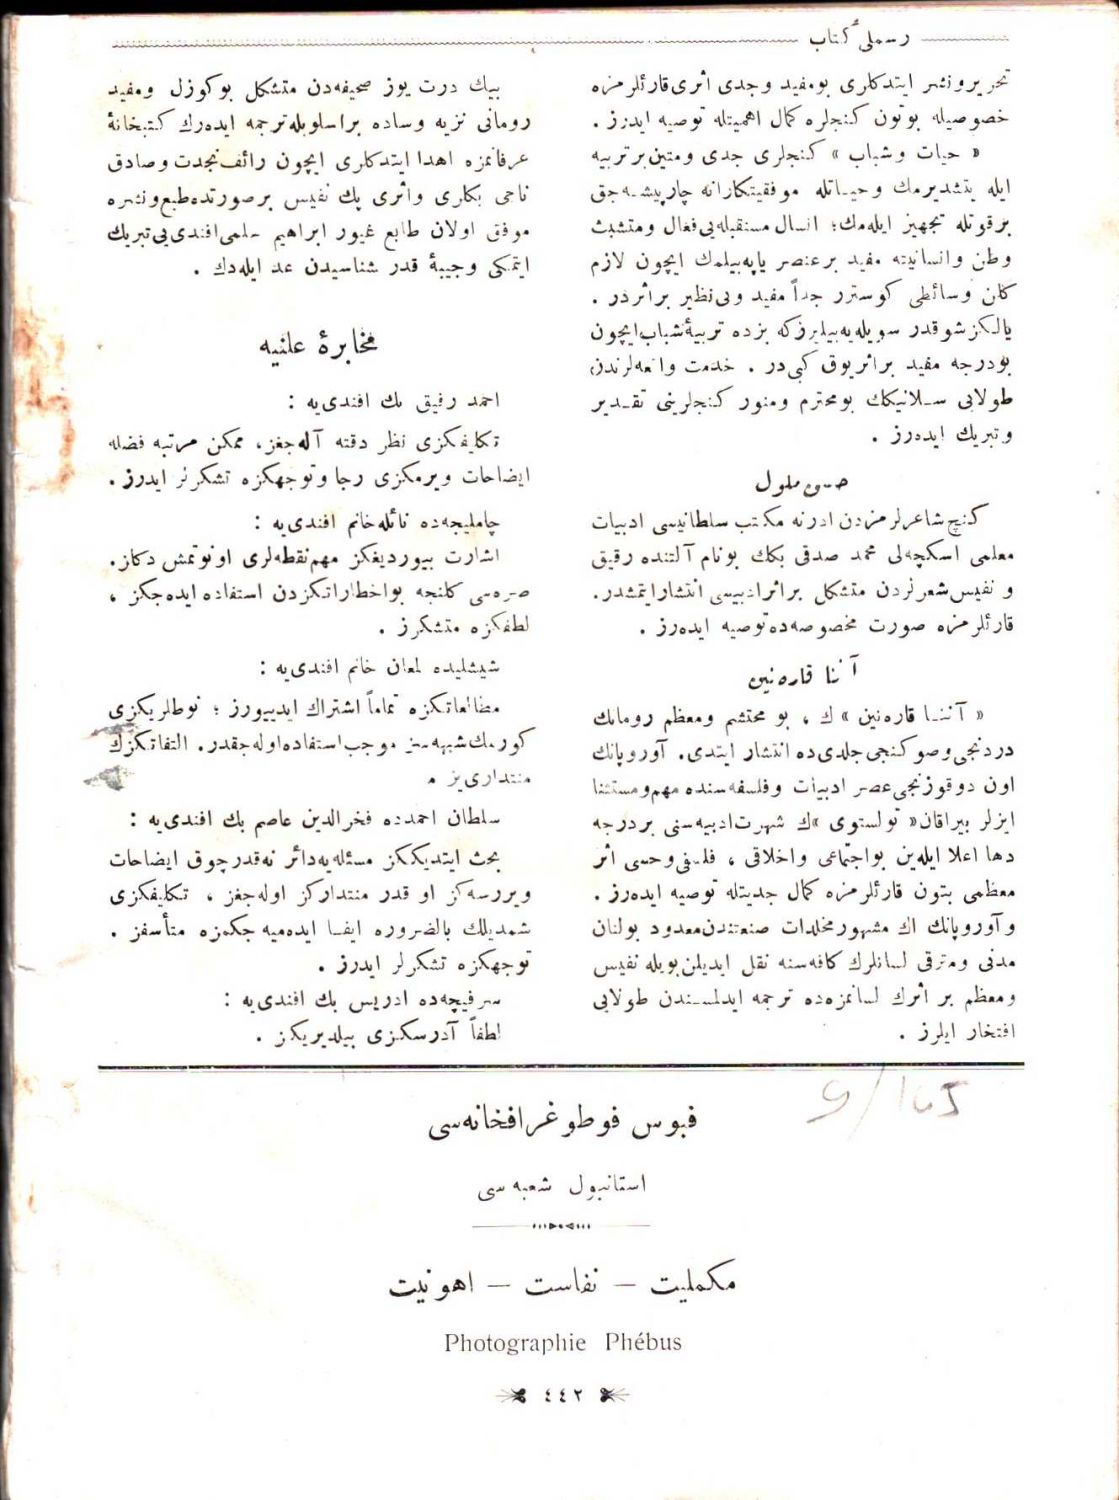 رسملی كتاب
تحریر و نشر ایتدكلری بو مفید و جدی اثری قارئلرمزه
خصوصیله بوتون كنجلره كمال اهمیتله توصیه ایدرز .
« حیات و شباب » كنجلری جدی و متین بر تربیه
ایله یتشدیرمك و حیاتله موفقیتكارانه چارپیشه‌جق
بر قوتله تجهیز ایله‌مك؛ انسال مستقبله‌یی فعال و متشبث
وطن و انسانیته مفید بر عنصر یاپه‌بیلمك ایچون لازم
كلن وسائطی كوسترر جداً مفید و بی نظیر بر اثردر .
یالكز شو قدر سویله‌یه‌بیلیرزكه بزده تربیهٔ شباب ایچون
بودرجه مفید بر اثر یوق كبی‌در . خدمت واقعه‌لرندن
طولایی سلانیكك بو محترم و منور كنجلرینی تقدیر
و تبریك ایده‌رز .
حسن ملول
كنج شاعرلرمزدن ادرنه مكتب سلطانیسی ادبیات
معلمی اسكچه‌لی محمد صدقی بكك بو نام آلتنده رقیق
و نفیس شعرلردن متشكل بر اثر ادبیسی انتشار ایتمشدر.
قارئلرمزه صورت مخصوصه‌ده توصیه ایده‌رز .
آننا قاره‌نین
« آننا قاره‌نین » ك ، بو محتشم و معظم رومانك
دردنجی و صوكنجی جلدی‌ده انتشار ایتدی. آوروپانك
اون دوقوزنجی عصر ادبیات و فلسفه‌سنده مهم و مستثنا
ایزلر بیراقان « تولستوی » ك شهرت ادبیه‌سنی بر درجه
دها اعلا ایله‌ین بو اجتماعی و اخلاقی ، فلسفی و حسی اثر
معظمی بتون قارئلرمزه كمال جدیتله توصیه ایده‌رز .
و آوروپانك اك مشهور مخلدات صنعتندن معدود بولنان
مدنی و مترقی لسانلرك كافه‌سنه نقل ایدیلن بویله نفیس
و معظم بر اثرك لسانمزه‌ده ترجمه ایدلمسندن طولایی
افتخار ایلرز .
بیك درت یوز صحیفه‌دن متشكل بو كوزل و مفید
رومانی نزیه و ساده بر اسلوبله ترجمه ایده‌رك كتبخانهٔ
عرفانمزه اهدا ایتدكلری ایچون رائف نجدت و صادق
ناجی بكلری و اثری پك نفیس بر صورتده طبع و نشره
موفق اولان طابع غیور ابراهیم حلمی افندی‌یی تبریك
ایتمكی وجیبهٔ قدر شناسیدن عد ایله‌دك .
مخابرهٔ علنیه
احمد رفیق بك افندی‌یه :
تكلیفكزی نظر دقته آله‌جغز، ممكن مرتبه فضله
ایضاحات ویرمكزی رجا و توجهكزه تشكرلر ایدرز .
چاملیجه‌ده نائله خانم افندی‌یه :
اشارت بیوردیغكز مهم نقطه‌لری اونوتمش دكلز.
صره‌سی كلنجه بو اخطاراتكزدن استفاده ایده‌جكز ،
لطفكزه متشكرز .
شیشلیده لمعان خانم افندی‌یه :
مطالعاتكزه تماماً اشتراك ایدییورز ؛ نوطلریكزی
كورمك شبهه‌سز موجب استفاده اوله‌جقدر. التفاتكزك
منتداری‌یز .
سلطان احمدده فخرالدین عاصم بك افندی‌یه :
بحث ایتدیككز مسئله‌یه دائر نه‌قدر چوق ایضاحات
ویررسه‌كز او قدر منتداركز اوله‌جغز ، تكلیفكزی
شمدیلك بالضروره ایفا ایده‌میه جكمزه متأسفز .
توجهكزه تشكرلر ایدرز .
سرفیچه‌ده ادریس بك افندی‌یه :
لطفاً آدرسكزی بیلدیریكز .
فبوس فوطوغرافخانه‌سی
استانبول شعبه‌سی
مكملیت — نفاست — اهونیت
Photographie Phébus
٤٤٢